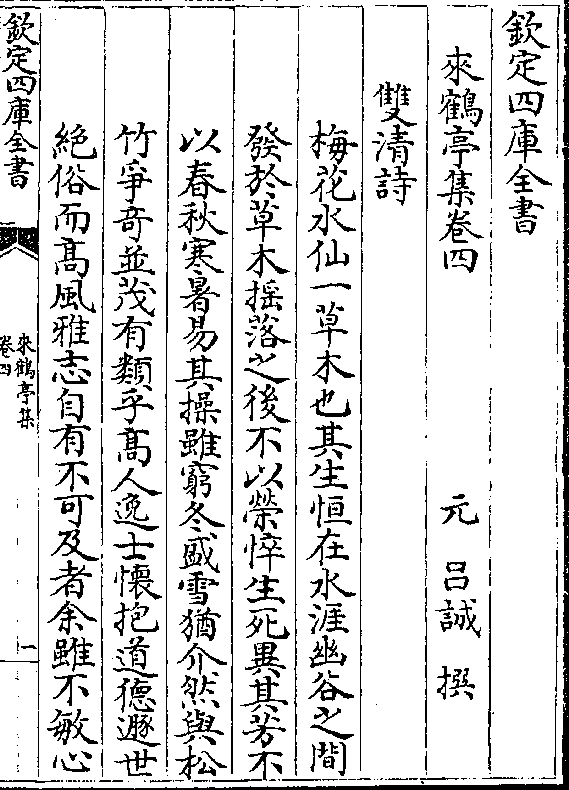 欽定四庫全書
來鶴亭集卷四
元 呂誠 撰
雙清詩
梅花水仙一草木也其生恒在水涯幽谷之間
發於草木揺落之後不以榮悴生死異其芳不
以春秋寒暑易其操雖窮冬盛雪猶介然與松
竹爭奇並茂有類乎髙人逸士懷抱道德遯世
絶俗而髙風雅志自有不可及者余雖不敏心
欽定四庫全書
來鶴亭集
卷四
一